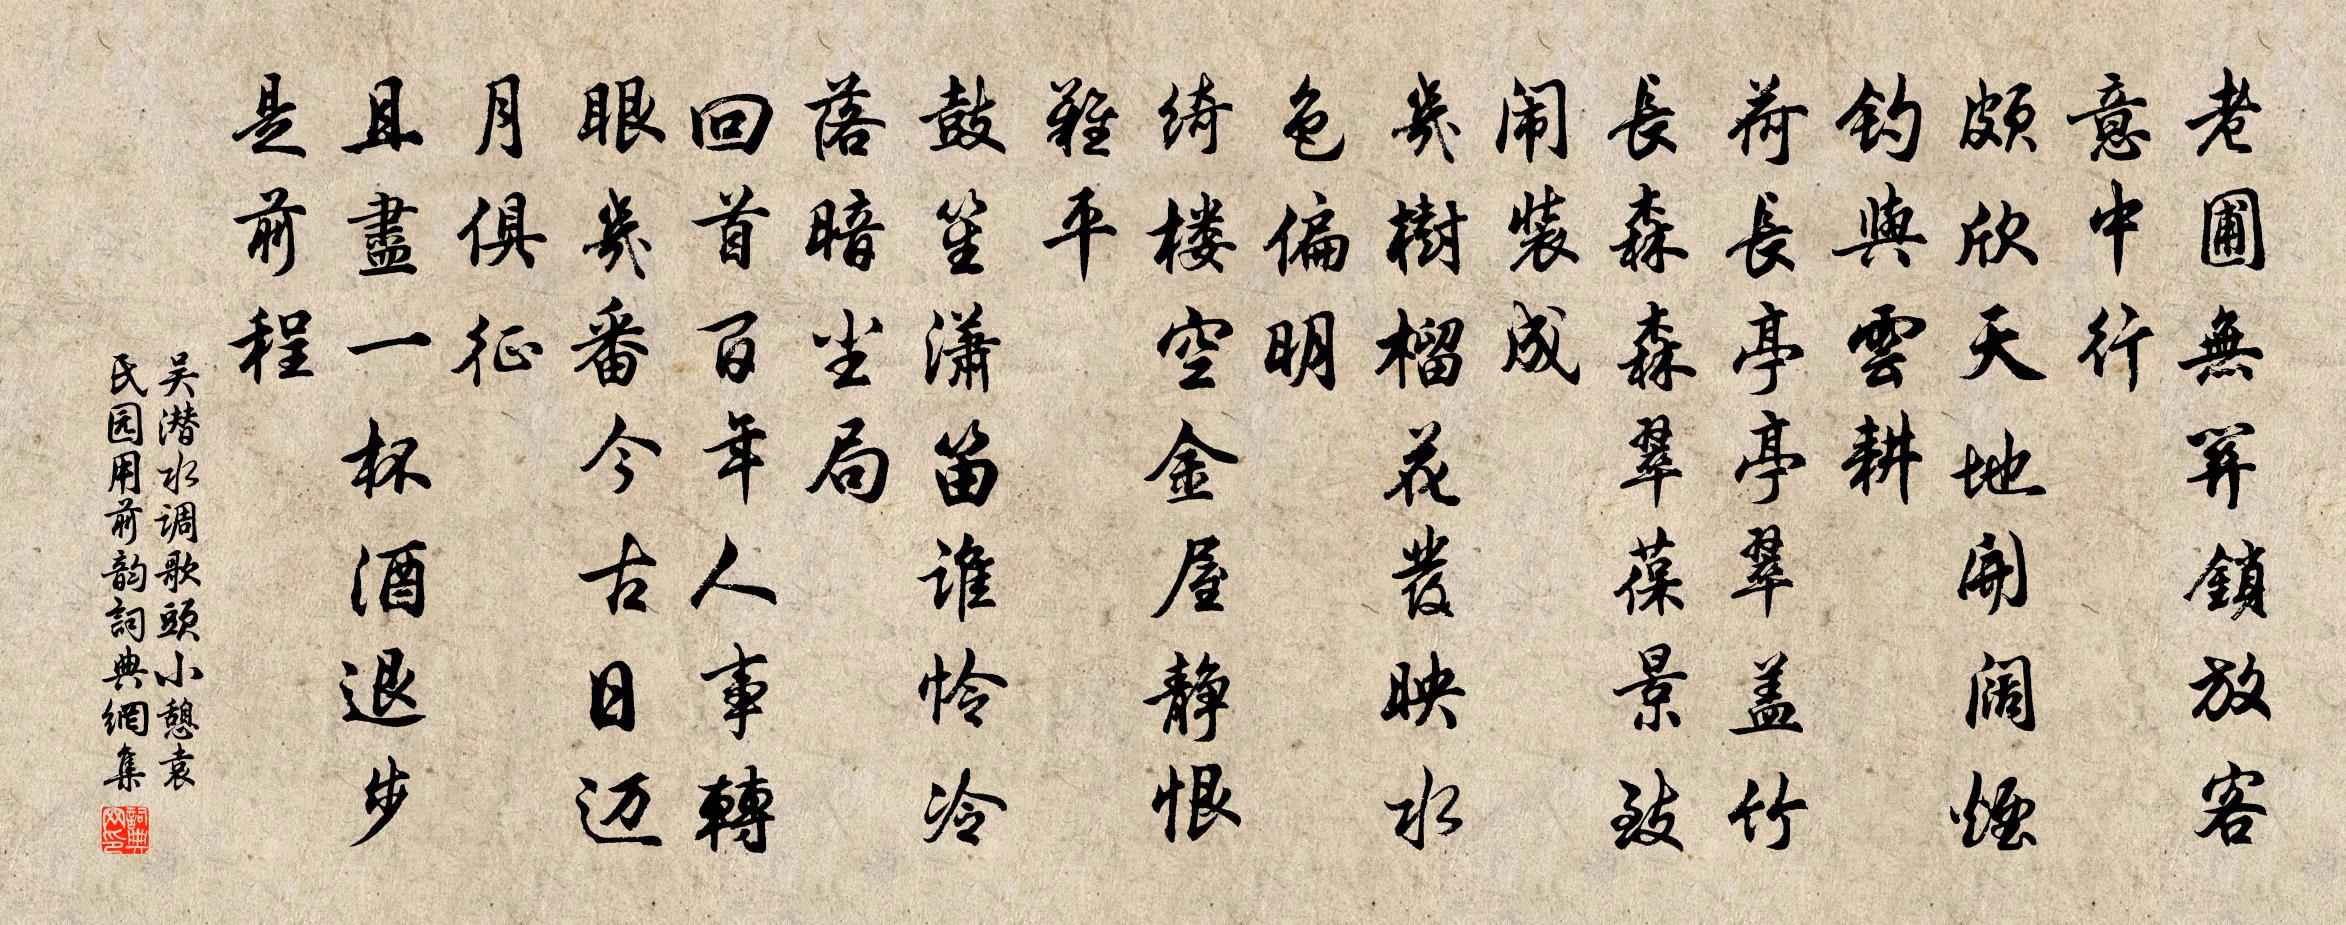 老圃無關鎖放客
意中行
頗欣天地開阔煙
釣與雲耕
荷長亭亭翠盖竹
長森森翠葆景致
闹裝成
幾樹榴花發映水
色偏明
绮楼空金屋静恨
難平
鼓笙瀟笛谁怜冷
落暗尘局
回首百年人事轉
眼幾番今古日迈
月俱征
且盡一杯酒退步
是前程
吴潜水调歌頭小憩袁
民园用前韵詞典網集
詞典
网印